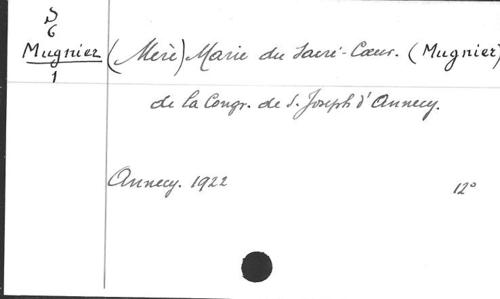 S
6
Mugnier (Mère) Marie du Sacré-Cœur. (Mugnier)
1
de la Congr. de S. Joseph d'Annecy.
Annecy. 1922 12°